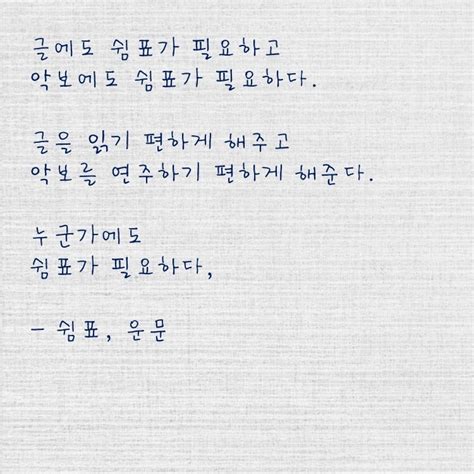 글에도 쉼표가 필요하고
악보에도 쉼표가 필요하다.
글을 읽기 편하게 해주고
악보를 연주하기 편하게 해준다.
누군가에도
쉼표가 필요하다,
- 쉼표, 운문